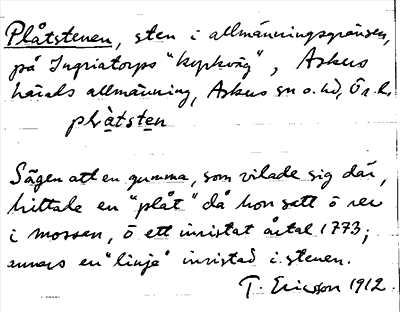 Plåtstenen, sten i allmänningsgränsen,
på Ingriatorps "kyrkväg", Askers
härads allmänning, Askers sn o. hd, Ör. l.
plåtsten
Sägen att en gumma, som vilade sig där,
hittade en "plåt" då hon sett ö
i mossen, ö ett inristat årtal 1773;
annars en "linje" inristad i stenen.
T. Ericsson 1912.